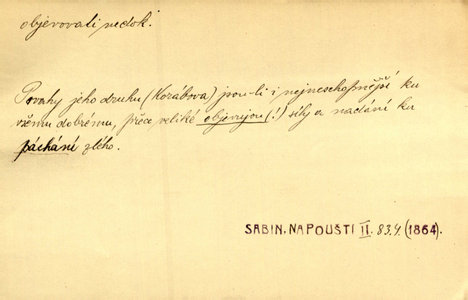 objevovati nedok.
Povahy jeho druhu (Kozábova) jsou-li i nejneschopnější ku
všemu dobrému, přece veliké objevujou (!) síly a nadání ku
páchání zlého.
SABIN. NA POUŠTI II. 83.9. (1864).